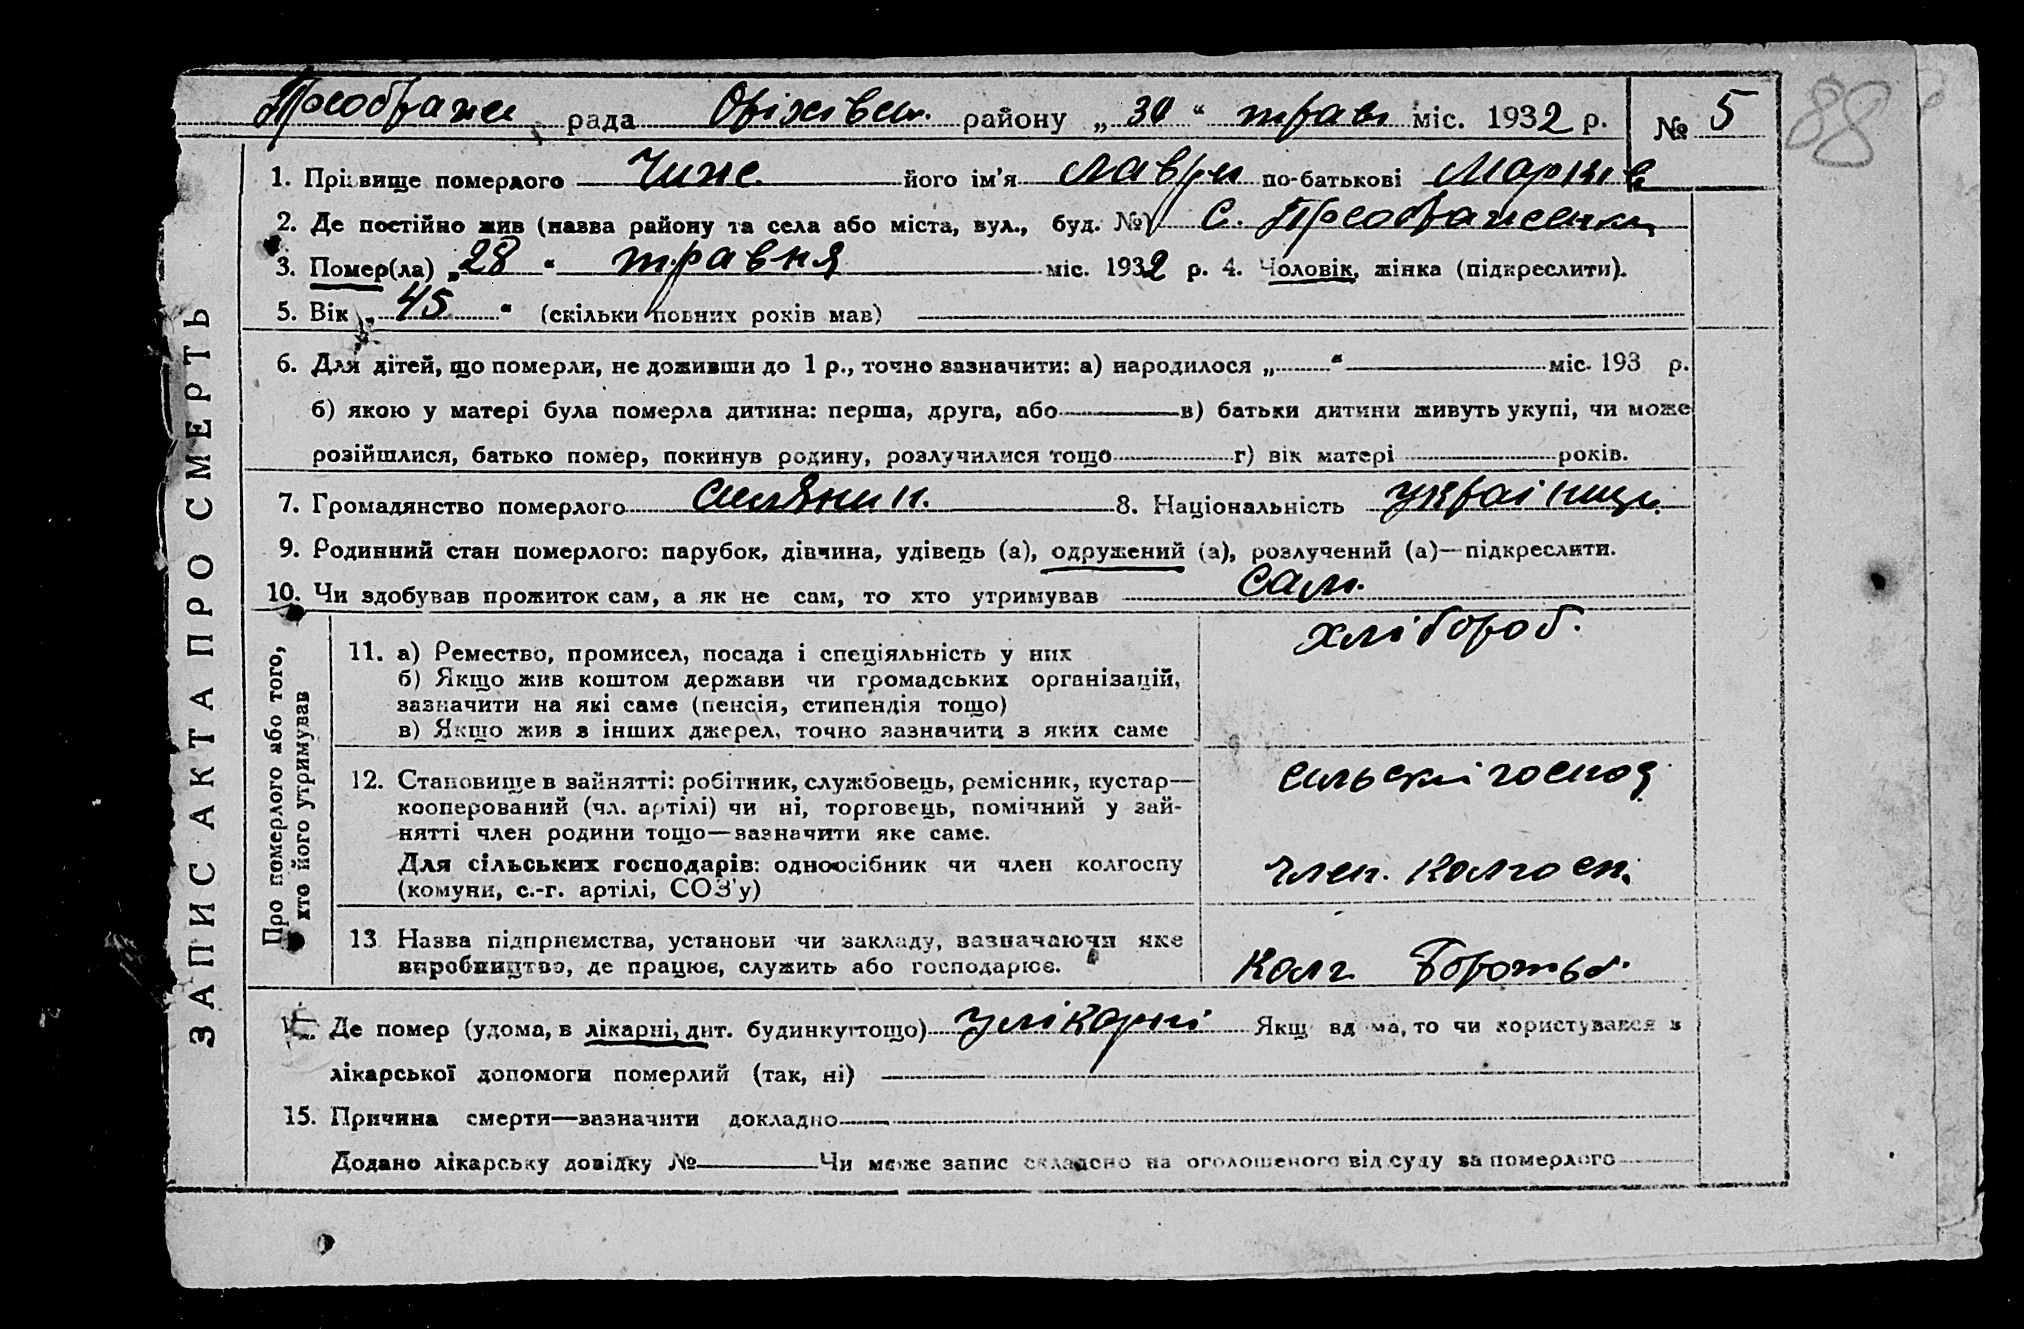 Преображен рада Оріхівськ. району „30“ трав міс. 1932 р. № 5
88
ЗАПИС АКТА ПРО СМЕРТЬ
1. Прізвище померлого Чиже його ім’я Лаврін по-батькові Марків
2. Де постійно жив (назва району та села або міста, вул., буд. №) с. Преображенка
3. Помер(ла) „28“ травня міс. 1932 р. 4. Чоловік, жінка (підкреслити).
5. Вік „45“ (скільки повних років мав)
6. Для дітей, що померли, не доживши до 1 р., точно зазначити: а) народилося „ “ міс. 193 р.
б) якою у матері була померла дитина: перша, друга, або в) батьки дитини живуть укупі, чи може
розійшлися, батько помер, покинув родину, розлучилися тощо г) вік матері років.
7. Громадянство померлого селянин. 8. Національність українець
9. Родинний стан померлого: парубок, дівчина, удівець (а), одружений (а), розлучений (а)—підкреслити.
10. Чи здобував прожиток сам, а як не сам, то хто утримував сам.
Про померлого або того,
хто його утримував
11. а) Ремество, промисел, посада і спеціяльність у них хлібороб.
б) Якщо жив коштом держави чи громадських організацій,
зазначити на які саме (пенсія, стипендія тощо)
в) Якщо жив з інших джерел, точно зазначити з яких саме
12. Становище в зайнятті: робітник, службовець, ремісник, кустар— сильский господ
кооперований (чл. артілі) чи ні, торговець, помічний у зай-
нятті член родини тощо—зазначити яке саме.
Для сільських господарів: одноосібник чи член колгоспу член. колгосп.
(комуни, с.-г. артілі, СОЗ’у)
13 Назва підприємства, установи чи закладу, зазначаючи яке
виробництво, де працює, служить або господарює. Колг. Боротьб.
Де помер (удома, в лікарні, дит. будинку тощо) у лікарні Якщ вд ма, то чи користувався з
лікарської допомоги померлий (так, ні)
15. Причина смерти—зазначити докладно
Додано лікарську довідку № Чи може запис складено на оголошеного від суду за померлого